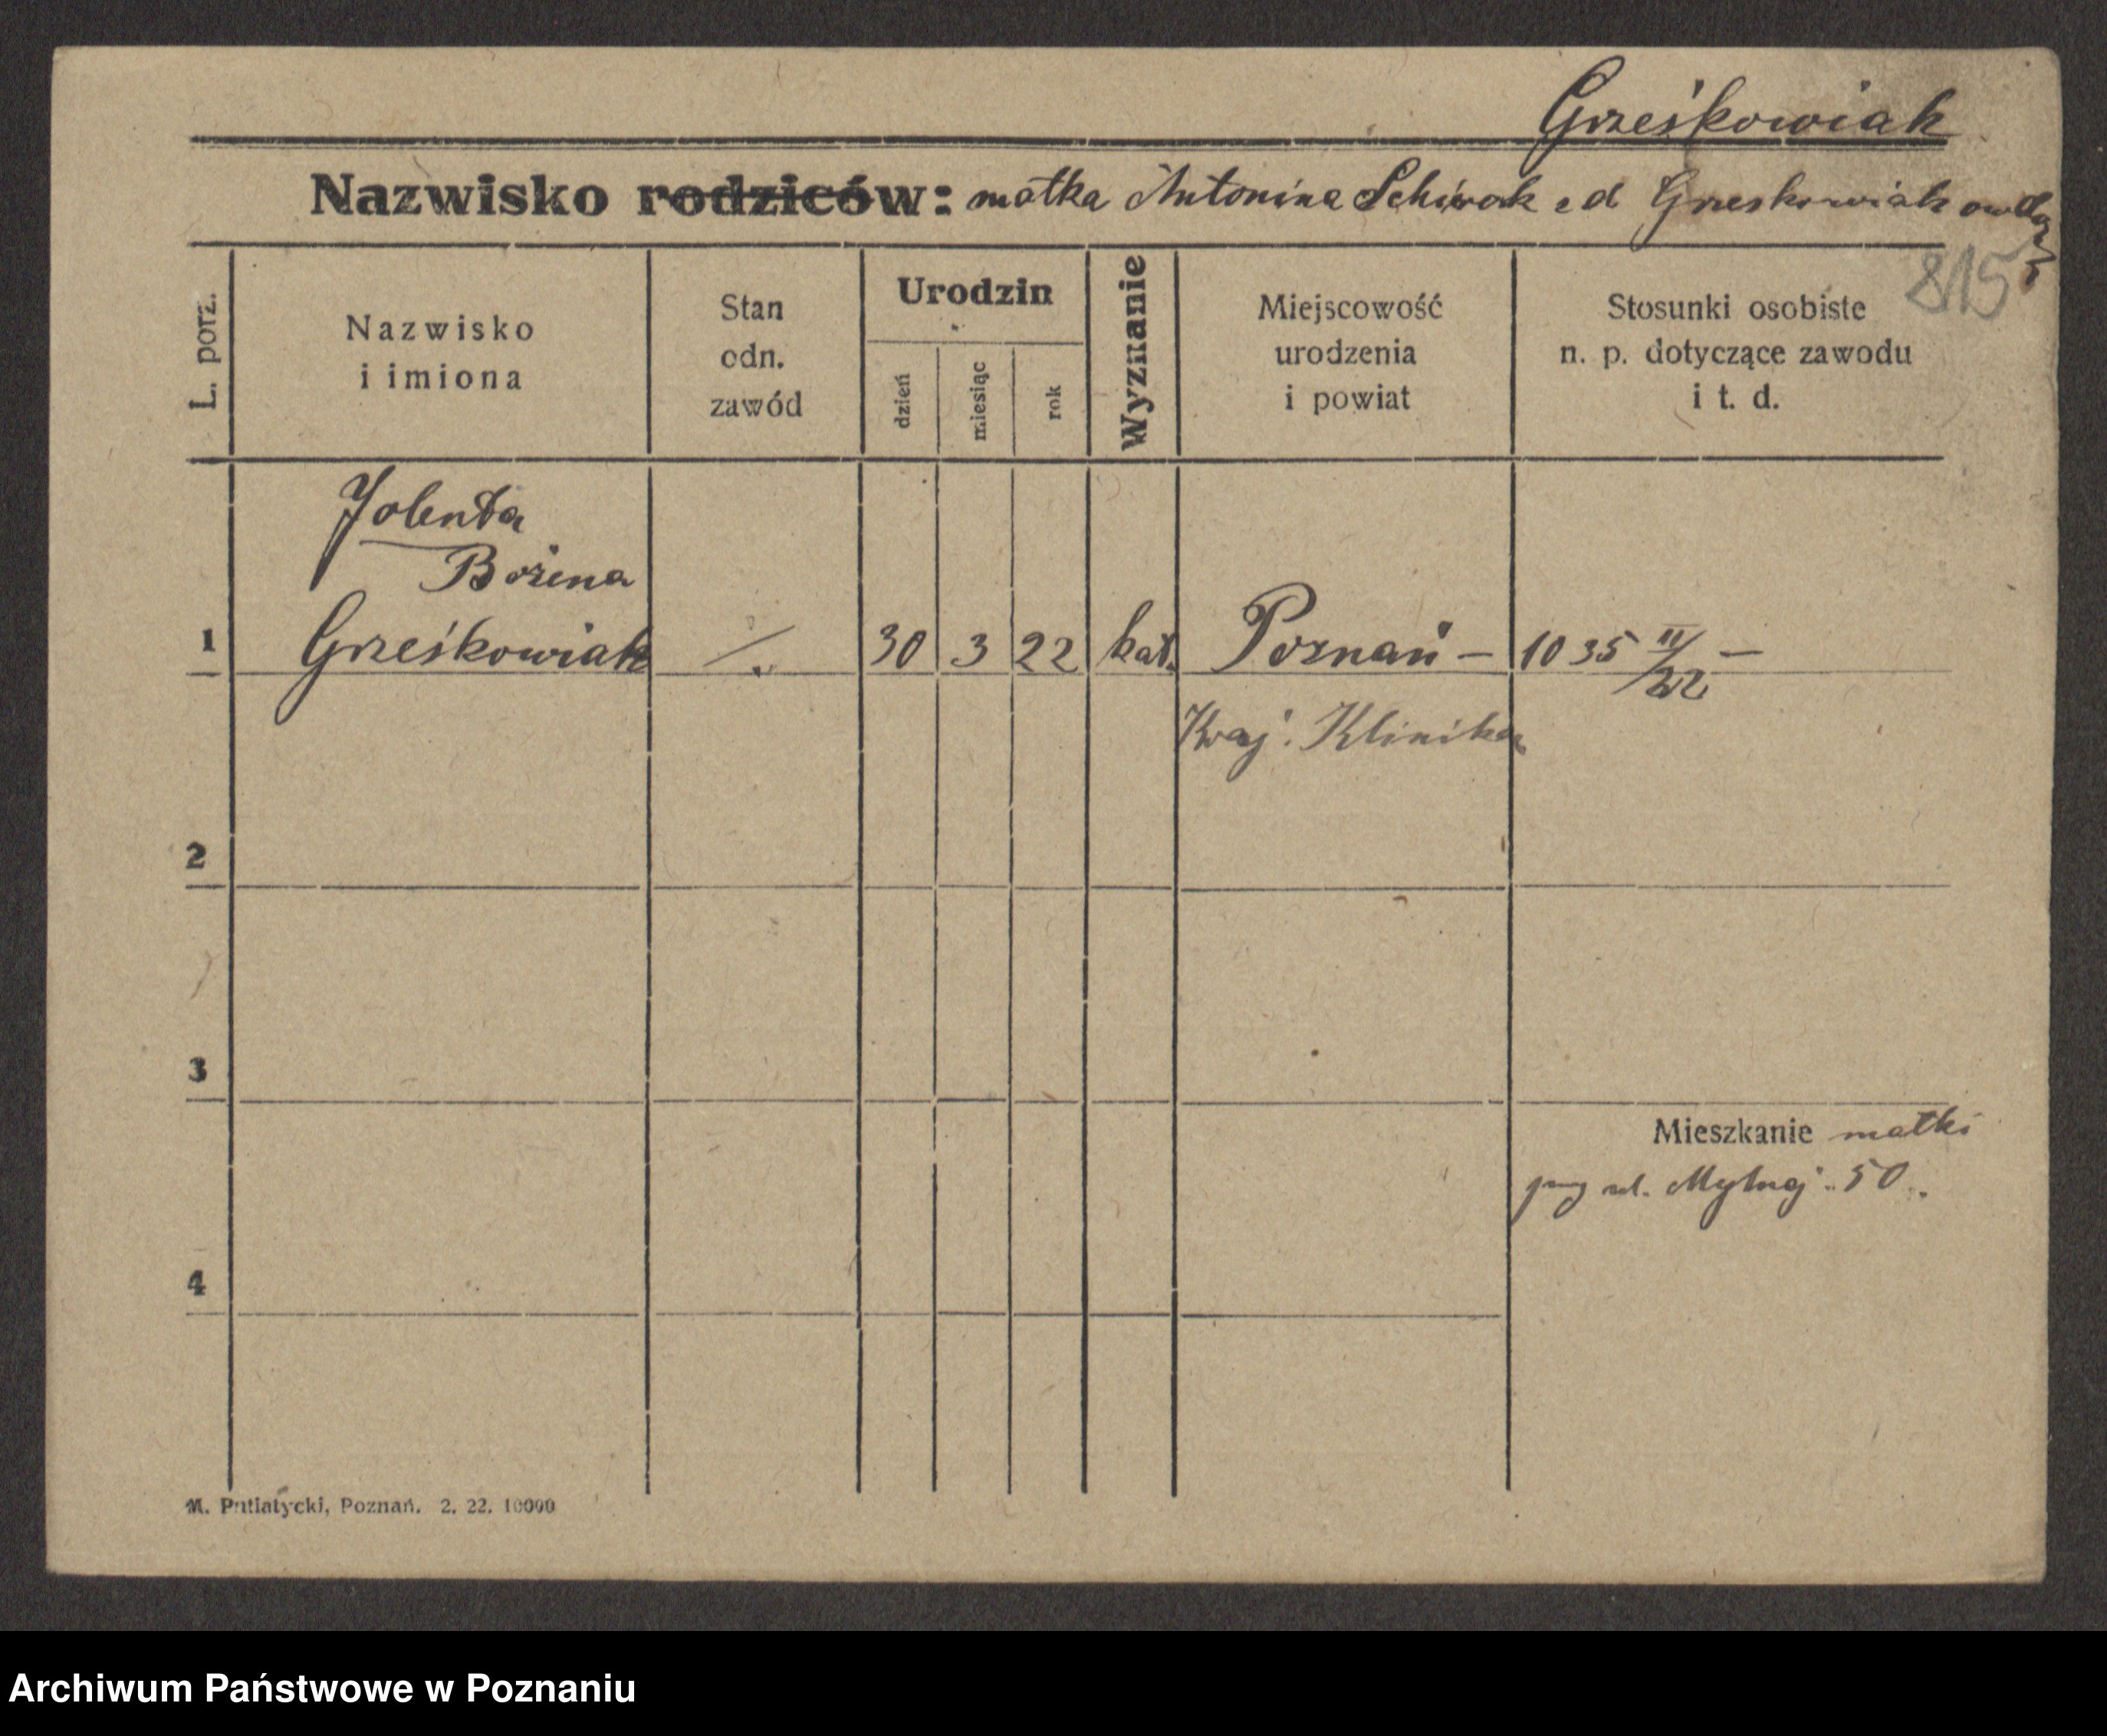 Grześkowiak
Nazwisko rodziców: matka Antonina Grześkowiak
815
L. porz.
Nazwisko
i imiona
Stan
odn.
zawód
Urodzin
dzień
miesiąc
rok
Wyznanie
Miejscowość
urodzenia
i powiat
Stosunki osobiste
n. p. dotyczące zawodu
i t. d.
Jolenta
Bożena
1 Grześkowiak ./. 30 3 22 kat. Poznań – 1035 II/22 –
Kraj. Klinika
2
3
Mieszkanie matki
przy ul. Mylnej 50.
4
M. Putiatycki, Poznań. 2. 22. 10000
Archiwum Państwowe w Poznaniu